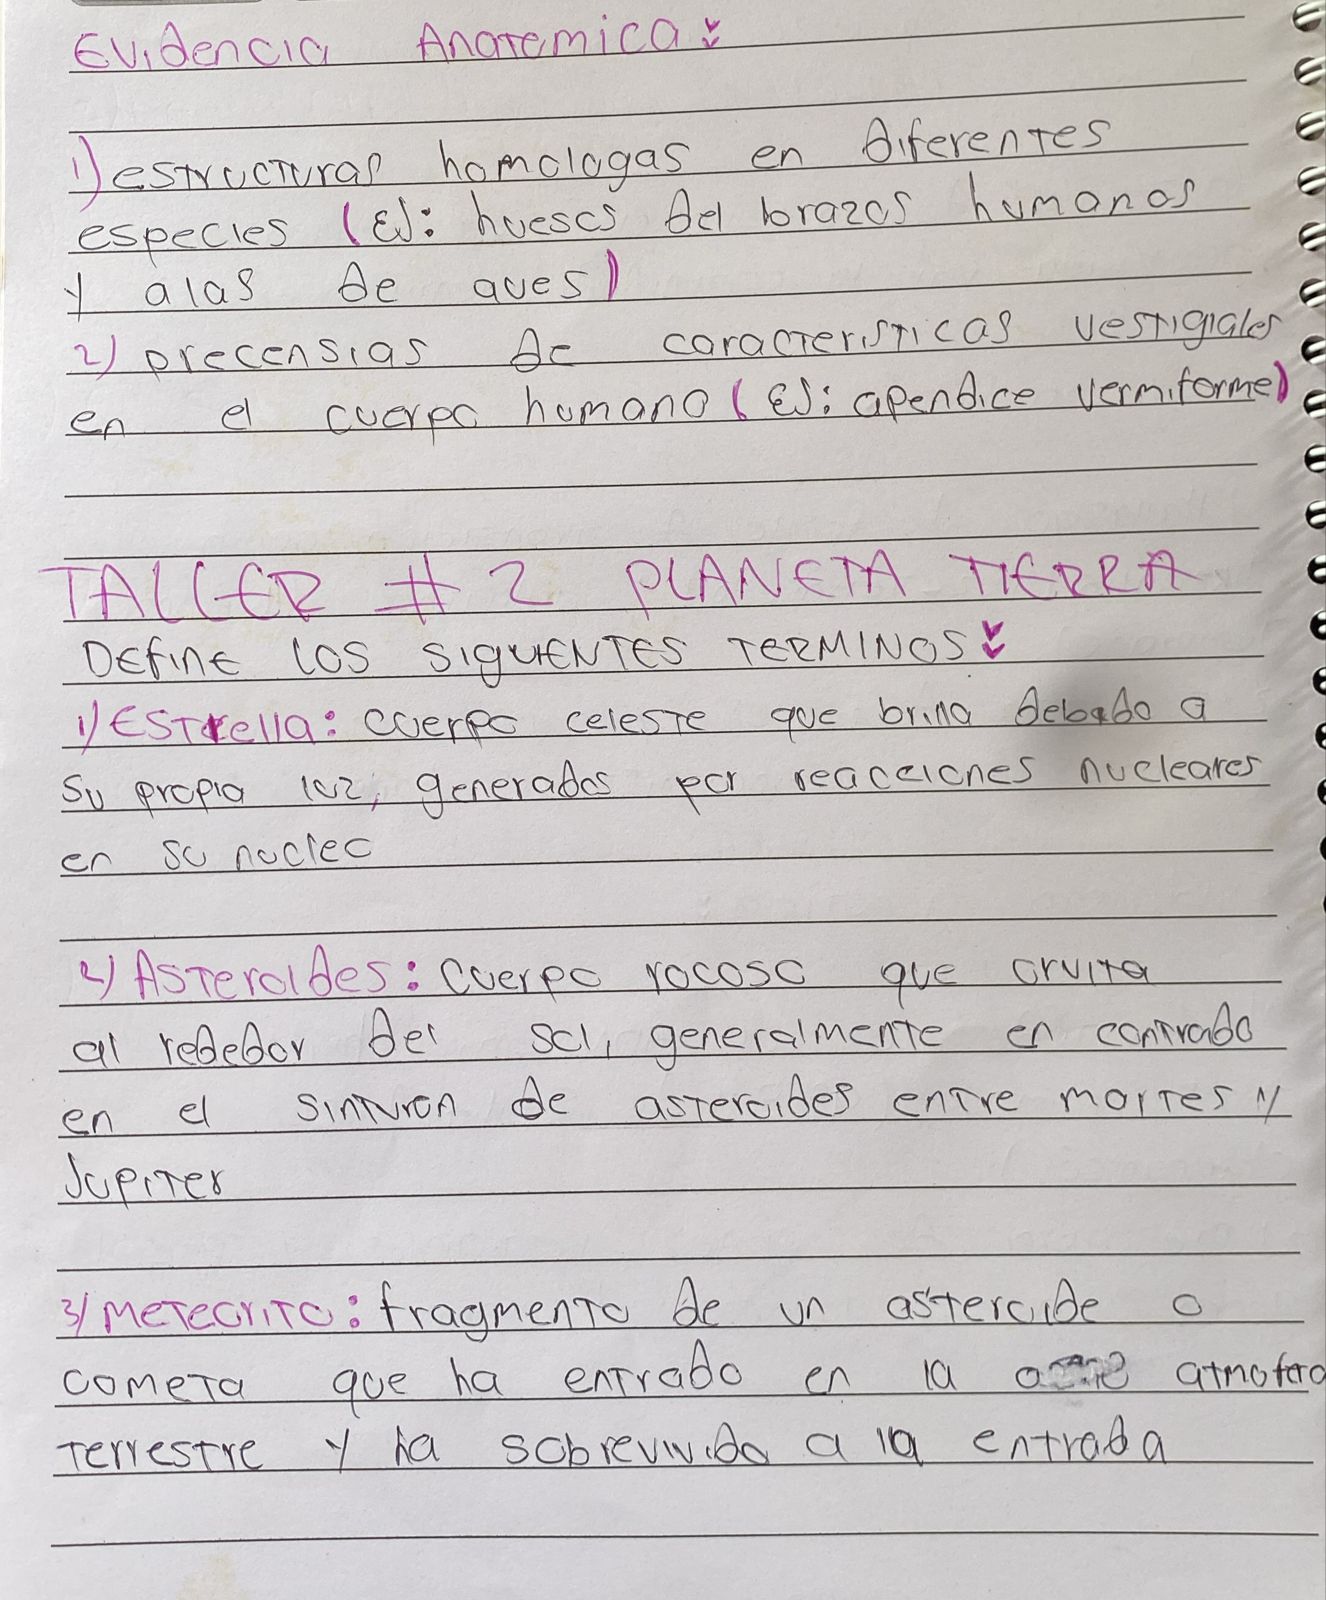 Evidencia Anatomica:
1) estructuras homologas en diferentes
especies (Ej: huesos del brazos humanos
y alas de aves)
2) precensias de caracteristicas vestigiales
en el cuerpo humano (Ej: apendice vermiforme)
TALLER # 2 PLANETA TIERRA
Define los siguientes terminos:
1) Estrella: cuerpo celeste que brilla debado a
su propia luz, generados por reacciones nucleares
en su nucleo
2) Asteroides: Cuerpo rocoso que orvita
al rededor del sol, generalmente en contrado
en el sinturon de asteroides entre martes y
Jupiter
3) meteorito: fragmento de un asteroide o
cometa que ha entrado en la atmofera
terrestre y ha sobrevivido a la entrada